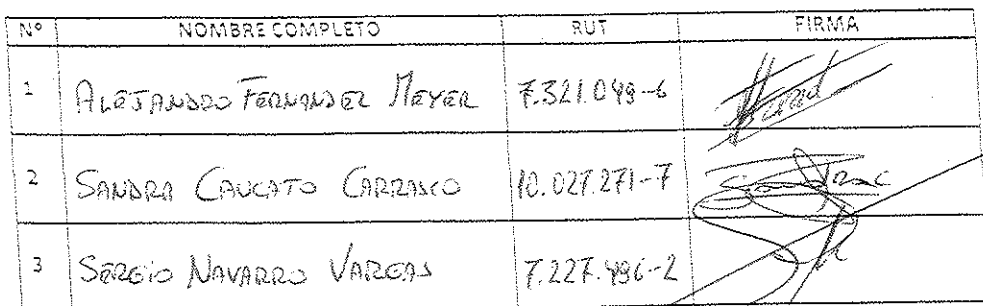 Nº NOMBRE COMPLETO RUT FIRMA
1 ALEJANDRO FERNANDEZ MEYER 7.321.049-6
2 SANDRA CAUCATO CARRASCO 10.027.271-7
3 SERGIO NAVARRO VARGAS 7.227.496-2